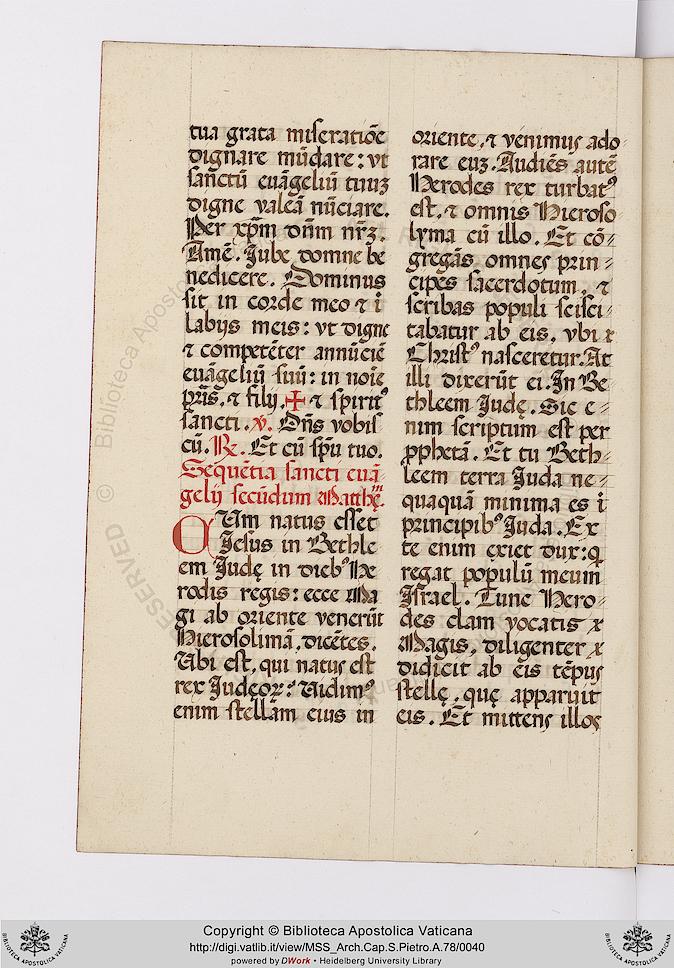 tua grata miseratiõe
dignare mũdare: vt
sanctũ euãgeliũ tuuȝ
digne valeã nũciare.
Per xp̃m dñm nr̃ȝ.
Amẽ. Jube domne be
nedicere. Dominus
sit in corde meo ⁊ ĩ
labijs meis: vt digne
⁊ competẽter annũciẽ
euãgeliũ suũ: in noĩe
pr̃is, ⁊ filij, ✠ ⁊ spirit⁹
sancti. ℣. Dñs vobis
cũ. ℞. Et cũ sp̃u tuo.
Sequẽtia sancti euã
gelij secũdum Matthęᵐ.
CVm natus esset
Jesus in Bethle
em Judę in dieb⁹ He
rodis regis: ecce Ma
gi ab oriente venerũt
Hierosolimã, dicẽtes.
Vbi est, qui natus est
rex Judęoꝝ? Vidim⁹
enim stellam eius in
oriente, ⁊ venimus ado
rare euȝ. Audiẽs autẽ
Herodes rex turbat⁹
est, ⁊ omnis Hieroso-
lyma cũ illo. Et cõ-
gregãs omnes prin-
cipes sacerdotum, ⁊
scribas populi scisci-
tabatur ab eis, vbi
Christ⁹ nasceretur. At
illi dixerũt ei. In Be-
thleem Judę. Sic e-
nim scriptum est per
ꝓphetã. Et tu Beth-
leem terra Juda ne-
quaquã minima es ĩ
principib⁹ Juda. Ex
te enim exiet dux: q̃
regat populũ meum
Israel. Tunc Hero-
des clam vocatis
Magis, diligenter
didicit ab eis tẽpus
stellę, quę apparuit
eis. Et mittens illos
© Biblioteca Aposto
RESERVED
BIBLIOTECA APOSTOLICA VATICANA
Copyright © Biblioteca Apostolica Vaticana
http://digi.vatlib.it/view/MSS_Arch.Cap.S.Pietro.A.78/0040
powered by DWork • Heidelberg University Library
BIBLIOTECA APOSTOLICA VATICANA